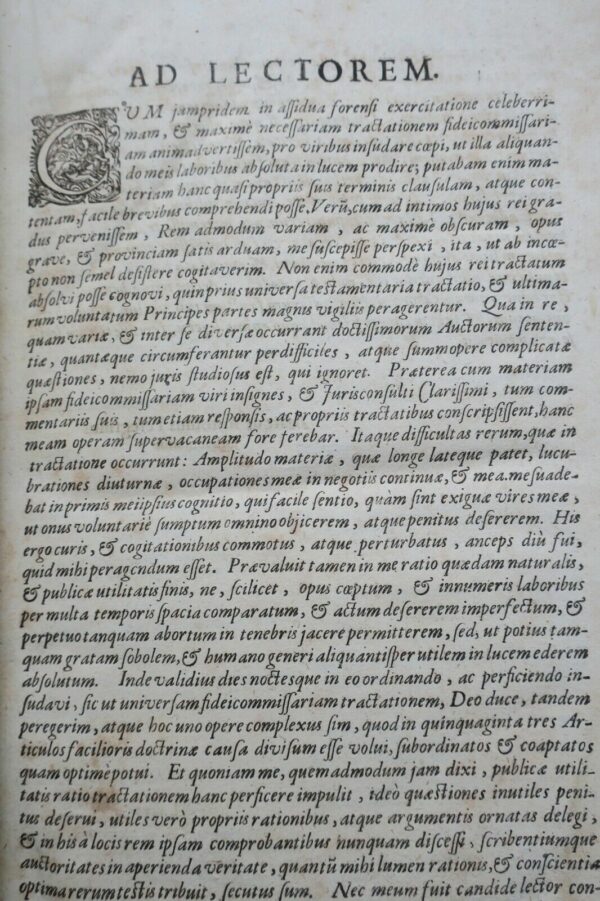 AD LECTOREM.
CUM jampridem in assidua forensi exercitatione celeberri-
mam, & maximè necessariam tractationem fideicommissari-
am animadvertissem, pro viribus insudare cœpi, ut illa aliquan-
do meis laboribus absoluta in lucem prodire; putabam enim ma-
teriam hanc quasi propriis suis terminis clausulam, atque con-
tentam, facile brevibus comprehendi posse. Verũ, cum ad intimos hujus rei gra-
dus pervenissem, Rem admodum variam, ac maximè obscuram, opus
grave, & provinciam satis arduam, me suscepisse perspexi, ita, ut ab incœ-
pto non semel desistere cogitaverim. Non enim commodè hujus rei tractatum
absolvi posse cognovi, quin prius universa testamentaria tractatio, & ultima-
rum voluntatum Principes partes magnis vigiliis peragerentur. Qua in re,
quam variæ, & inter se diversæ occurrant doctissimorum Auctorum senten-
tiæ, quantæque circumferantur perdifficiles, atque summopere complicatæ
quæstiones, nemo juris studiosus est, qui ignoret. Præterea cum materiam
ipsam fideicommissariam viri insignes, & Jurisconsulti Clarissimi, tum com-
mentariis suis, tum etiam responsis, ac propriis tractatibus conscripsissent, hanc
meam operam supervacaneam fore ferebar. Itaque difficultas rerum, quæ in
tractatione occurrunt: Amplitudo materiæ, quæ longe lateque patet, lucu-
brationes diuturnæ, occupationes meæ in negotiis continuæ, & mea.mesuade-
bat in primis meiipsius cognitio, qui facile sentio, quàm sint exiguæ vires meæ,
ut onus voluntariè sumptum omnino objicerem, atque penitus desererem. His
ergo curis, & cogitationibus commotus, atque perturbatus, anceps diù fui,
quid mihi peragendum esset. Prævaluit tamen in me, ratio quædam naturalis,
& publicæ utilitatis finis, ne, scilicet, opus cœptum, & innumeris laboribus
per multa temporis spacia comparatum, & actum desererem imperfectum, &
perpetuo tanquam abortum in tenebris jacere permitterem, sed, ut potius tam-
quam gratam sobolem, & humano generi aliquantisper utilem in lucem ederem
absolutum. Inde validius dies noctesque in eo ordinando, ac perficiendo in-
sudavi, sic ut universam fideicommissariam tractationem, Deo duce, tandem
peregerim, atque hoc uno opere complexus sim, quod in quinquaginta tres Ar-
ticulos facilioris doctrinæ causa divisum esse volui, subordinatos & coaptatos
quam optimè potui. Et quoniam me, quemadmodum jam dixi, publicæ utili-
tatis ratio tractationem hanc perficere impulit, ideò quæstiones inutiles peni-
tus deserui, utiles verò propriis rationibus, atque argumentis ornatas delegi,
& in his à locis rem ipsam comprobantibus nunquam discessi, scribentiumque
auctoritates in aperienda veritate, quantũ mihi lumen rationis, & conscientia
optima rerum testis tribuit, secutus sum. Nec meum fuit candide lector con-